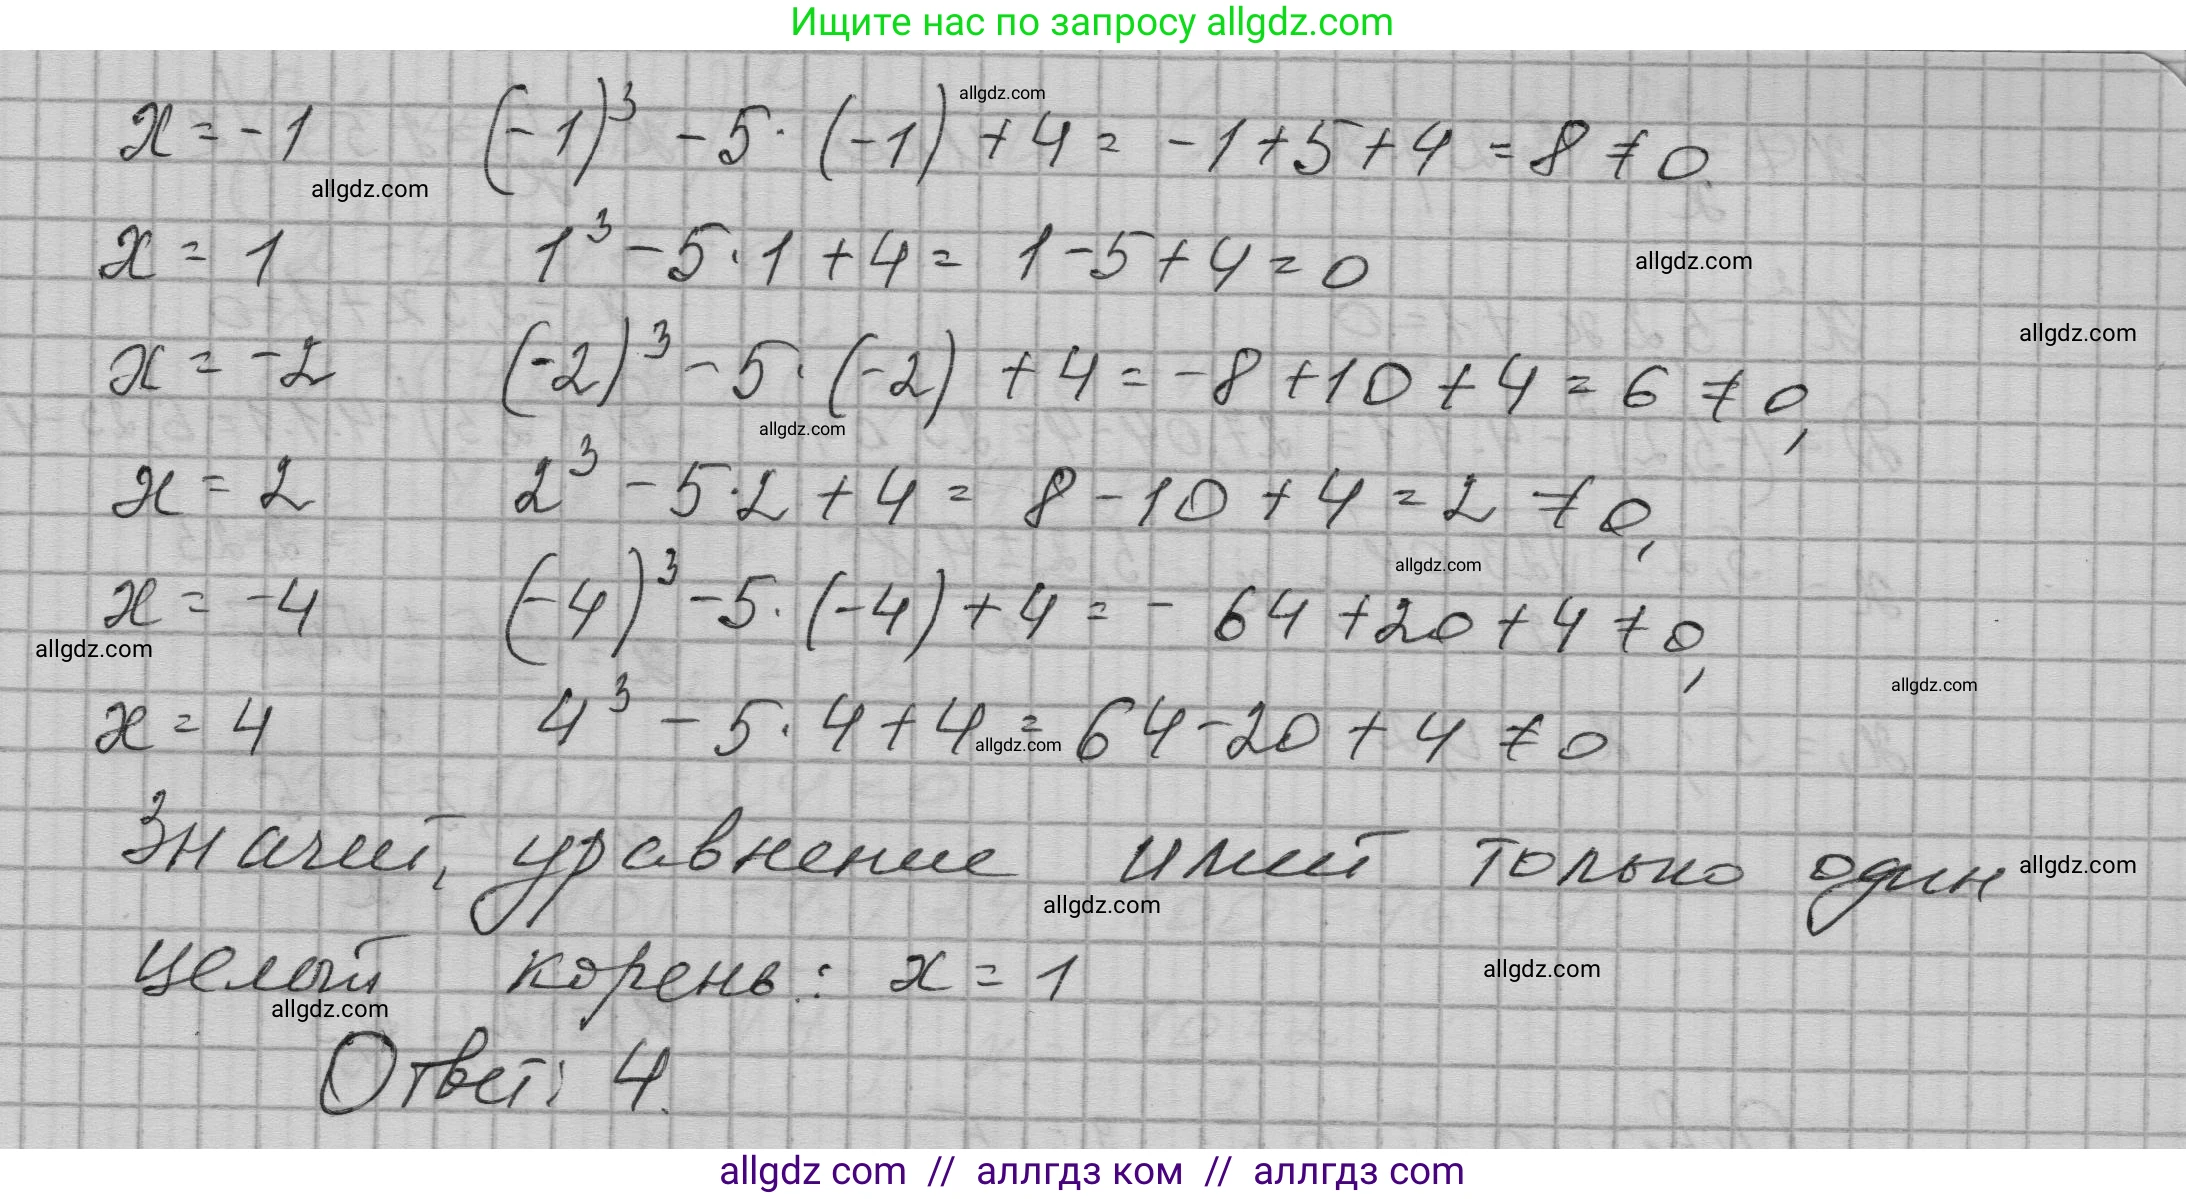 Ищите нас по запросу allgdz.com
x = -1 (-1)³ - 5·(-1) + 4 = -1 + 5 + 4 = 8 ≠ 0.
allgdz.com
allgdz.com
x = 1 1³ - 5·1 + 4 = 1 - 5 + 4 = 0
allgdz.com
allgdz.com
x = -2 (-2)³ - 5·(-2) + 4 = -8 + 10 + 4 = 6 ≠ 0,
allgdz.com
x = 2 2³ - 5·2 + 4 = 8 - 10 + 4 = 2 ≠ 0,
allgdz.com
x = -4 (-4)³ - 5·(-4) + 4 = - 64 + 20 + 4 ≠ 0,
allgdz.com
allgdz.com
x = 4 4³ - 5·4 + 4 = 64 - 20 + 4 ≠ 0
allgdz.com
Значит, уравнение имеет только один
allgdz.com
allgdz.com
целый корень: x = 1
allgdz.com
allgdz.com
Ответ: 4.
allgdz com // аллгдз ком // аллгдз com